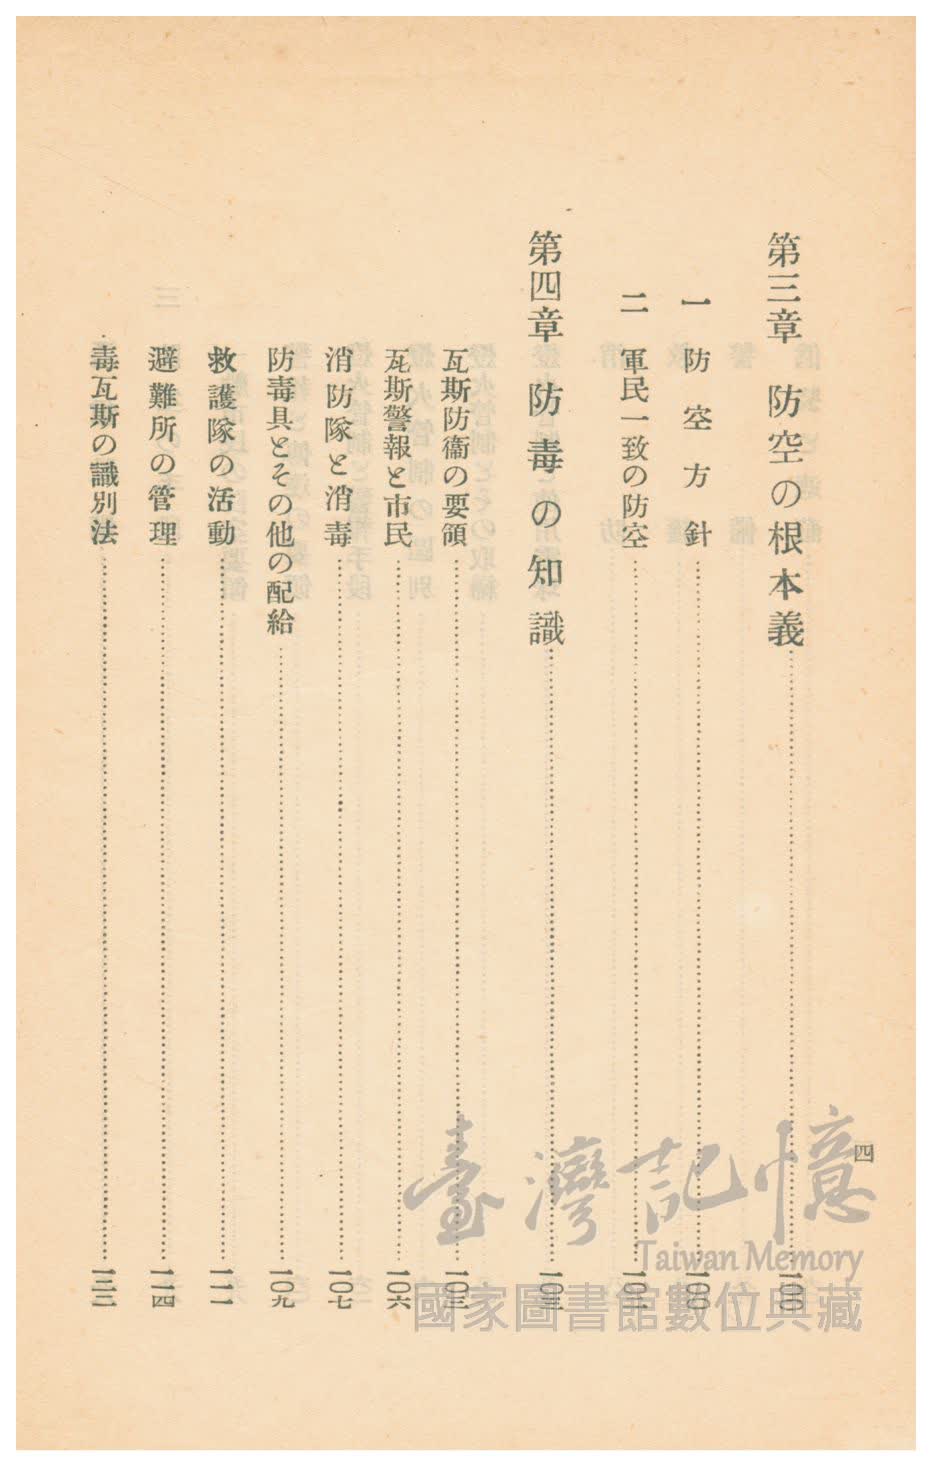 四
第三章 防空の根本義……一〇〇
一 防空方針……一〇〇
二 軍民一致の防空……
第四章 防毒の知識……一〇三
瓦斯防衞の要領……一〇三
瓦斯警報と市民……一〇六
消防隊と消毒……一〇七
防毒具とその他の配給……一〇九
救護隊の活動……一一一
避難所の管理……一一四
毒瓦斯の識別法……
臺灣記憶
Taiwan Memory
國家圖書館數位典藏